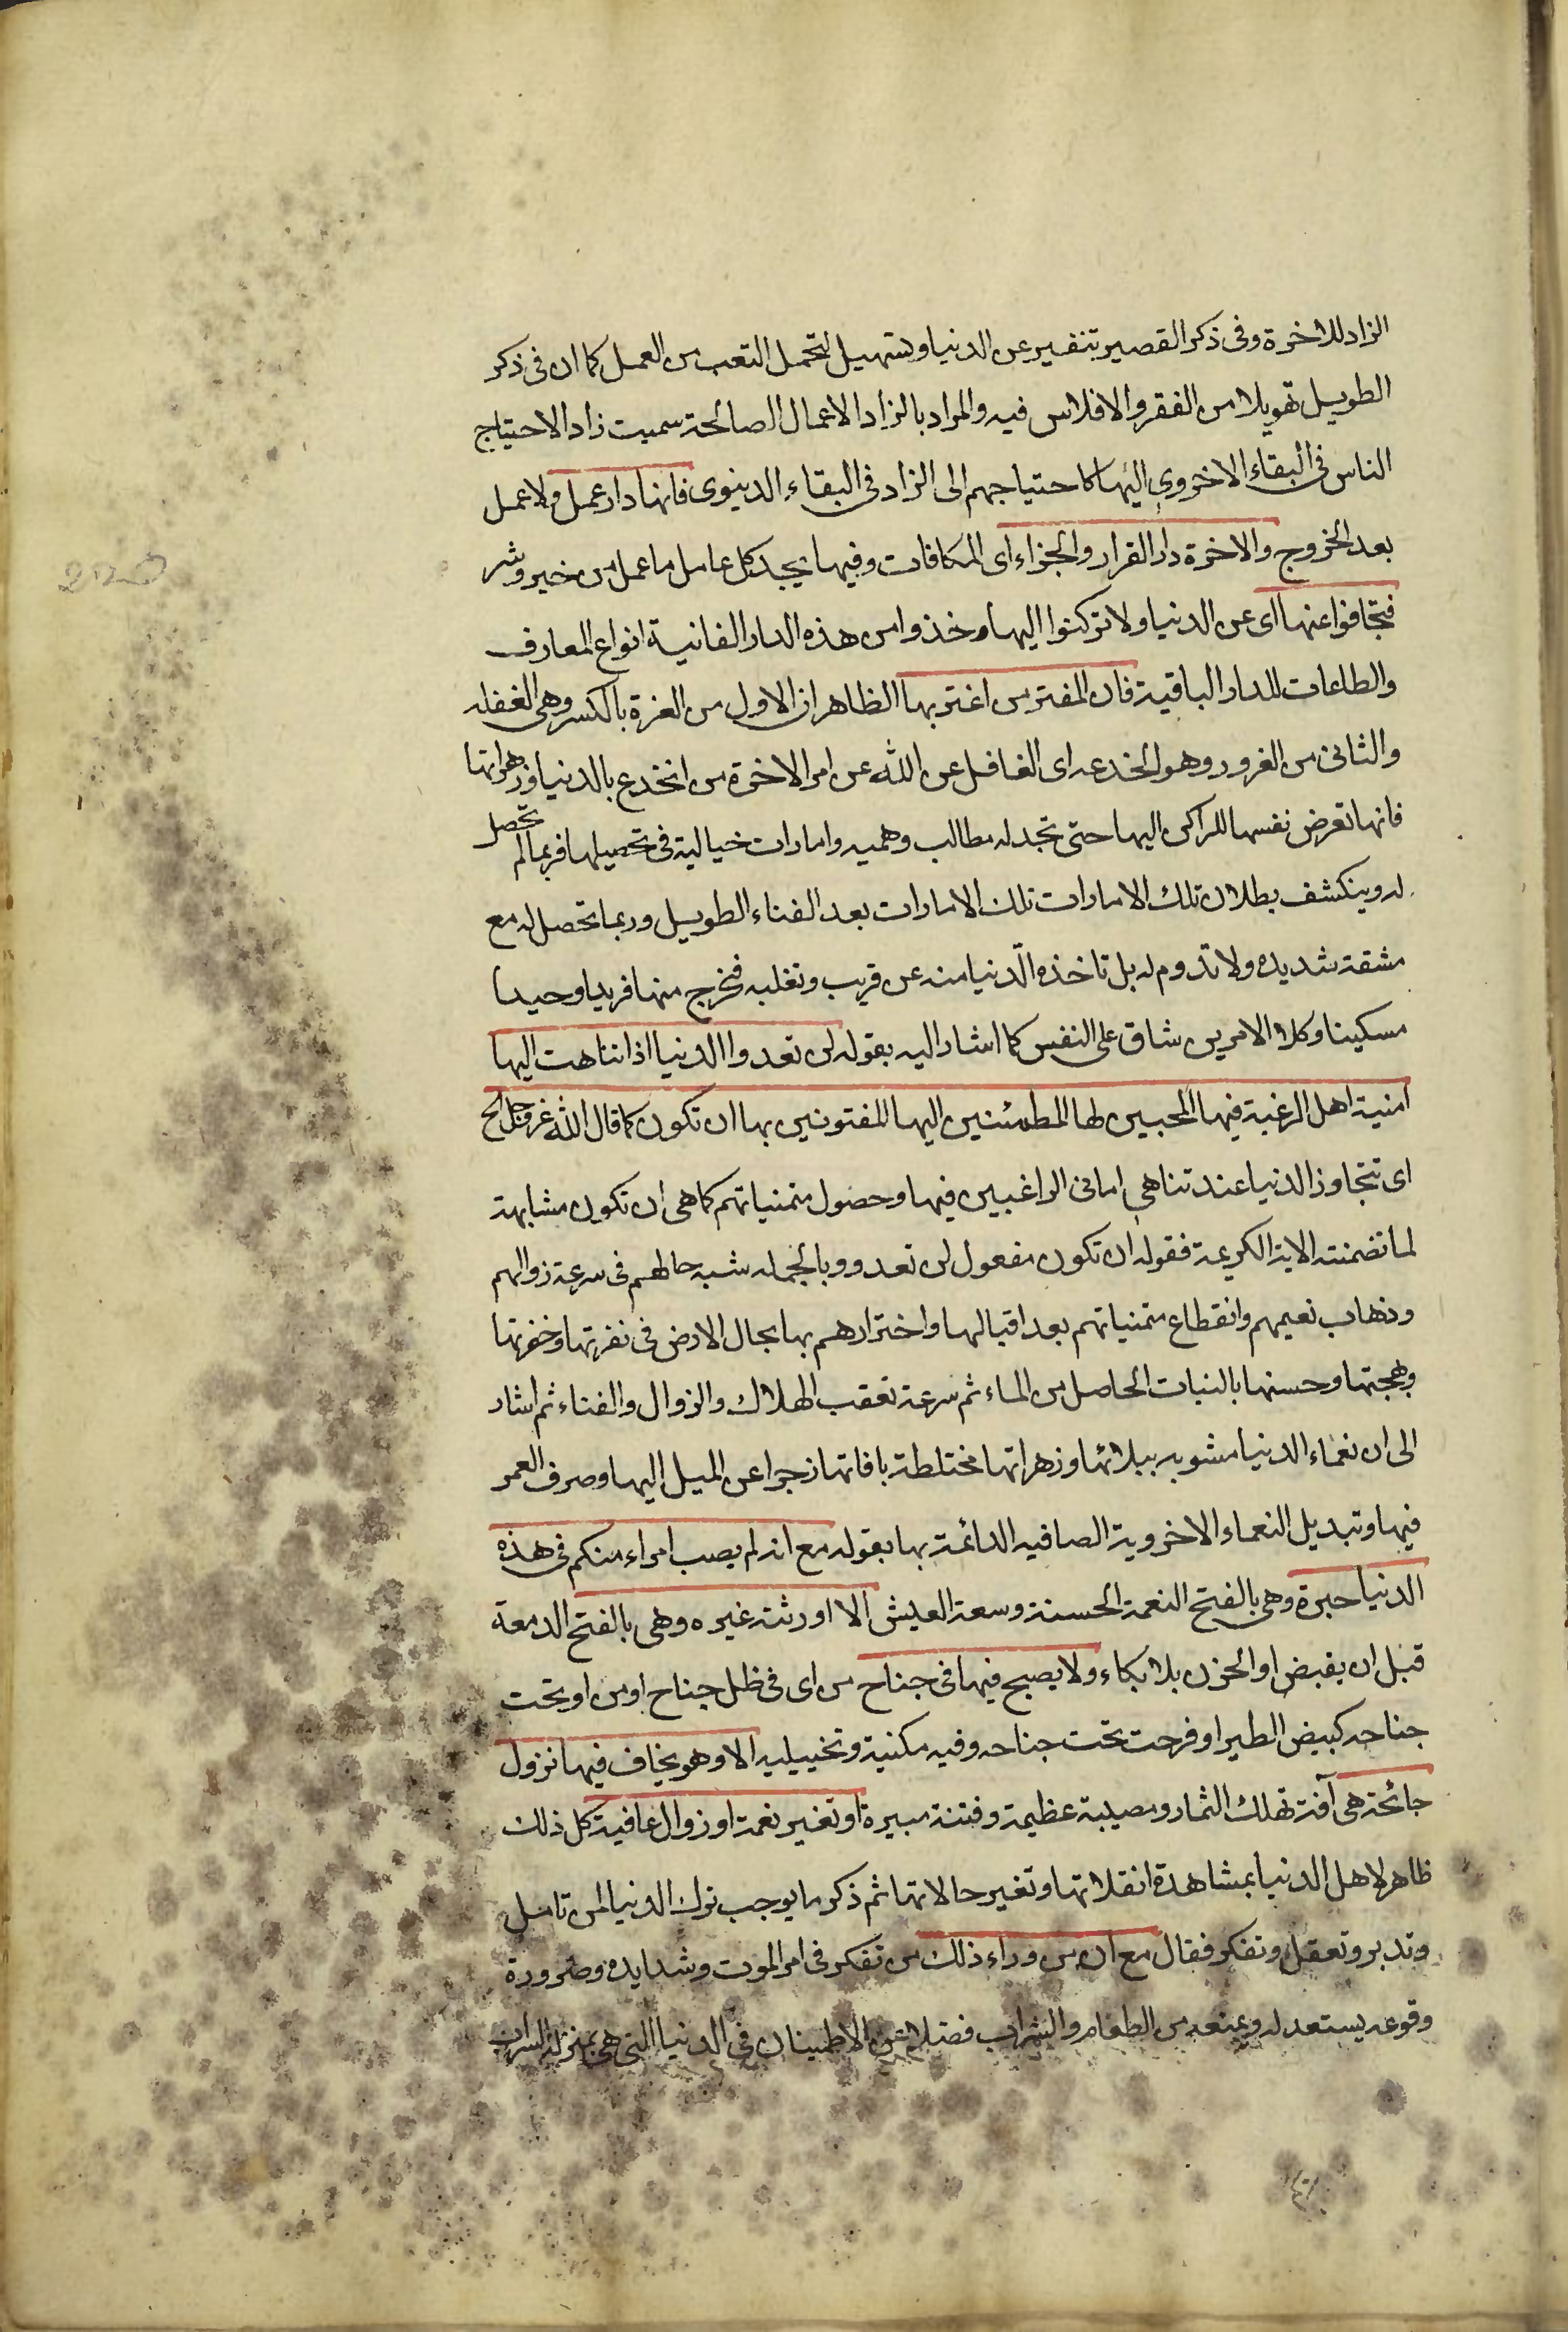 الزاد للاخرة وفى ذكر القصير تنفير عن الدنيا وتسهيل لتحمل التعب من العمل كما ان فى ذكر
الطويل تهويلا من الفقر والافلاس فيه والمراد بالزاد الاعمال الصالحة سميت زاد الاحتياج
الناس فى البقاء الاخروى اليها كاحتياجهم الى الزاد فى البقاء الدنيوى فانها دار عمل ولا عمل
بعد الخروج والاخرة دار القرار والجزاء اى المكافات وفيها يجد كل عامل ما عمل من خير وشر
فتجافوا عنها اى عن الدنيا ولا تركنوا اليها وخذوا من هذه الدار الفانية انواع المعارف
والطاعات للدار الباقية فان المفتر من اغتر بها الظاهر ان الاول من الغرة بالكسر وهى الغفله
والثانى من الغرور وهو الخدعه اى الغافل عن الله عن امر الاخرة من انخدع بالدنيا وزهراتها
فانها تعرض نفسها للراكن اليها حتى تجد له مطالب وهميه وامارات خيالية فى تحصيلها فربما لم تحصل
له وينكشف بطلان تلك الامارات تلك الامارات بعد الفناء الطويل وربما تحصل له مع
مشقة شديده ولا تدوم له بل تاخذه الدنيا منه عن قريب وتغلبه فتخرج منها فريدا وحيدا
مسكينا وكلا الامرين شاق على النفس كما اشار اليه بقوله لن تعدوا الدنيا اذا تناهت اليها
امنية اهل الرغبة فيها المحبين لها المطمئنين اليها المفتونين بها ان تكون كما قال الله عز وجل الخ
اى تتجاوز الدنيا عند تناهى امانى الراغبين فيها وحصول متمنياتهم كما هى ان تكون مشابهة
لما تضمنته الاية الكريمة فقوله ان تكون مفعول لن تعدو وبالجمله شبه حالهم فى سرعة زوالهم
وذهاب نعيمهم وانقطاع متمنياتهم بعد اقبالها واخترارهم بها بحال الارض فى نضرتها وخضرتها
وبهجتها وحسنها بالنبات الحاصل من الماء ثم سرعة تعقب الهلاك والزوال والفناء ثم اشار
الى ان نعماء الدنيا مشوبه ببلائها وزهراتها مختلطة بافاتها زجرا عن الميل اليها وصرف العمر
فيها وتبديل النعماء الاخروية الصافيه الدائمة بها بقوله مع انه لم يصب امراء منكم فى هذه
الدنيا حبرة وهى بالفتح النعمة الحسنة وسعة العيش الا اورثته عبره وهى بالفتح الدمعة
قبل ان يفيض او الحزن بلا بكاء ولا يصبح فيها فى جناح من اى فى ظل جناح او من او تحت
جناحه كبيض الطير او فرحت تحت جناحه وفيه مكنية وتخييليه الا وهو يخاف فيها نزول
جائحة هى آفة تهلك الثمار ومصيبة عظيمة وفتنة مبيرة او تغير نعمة او زوال عافية كل ذلك
ظاهر لاهل الدنيا بمشاهدة انقلاتها وتغير حالاتها ثم ذكر ما يوجب ترك الدنيا لمن تامل
وتدبر وتعقل وتفكر فقال مع ان من وراء ذلك من تفكر فى امر الموت وشدايده وضرورة
وقوعه يستعد له ويمنعه من الطعام والشراب فضلا عن الاطمينان فى الدنيا التى هى بمنزلة السراب